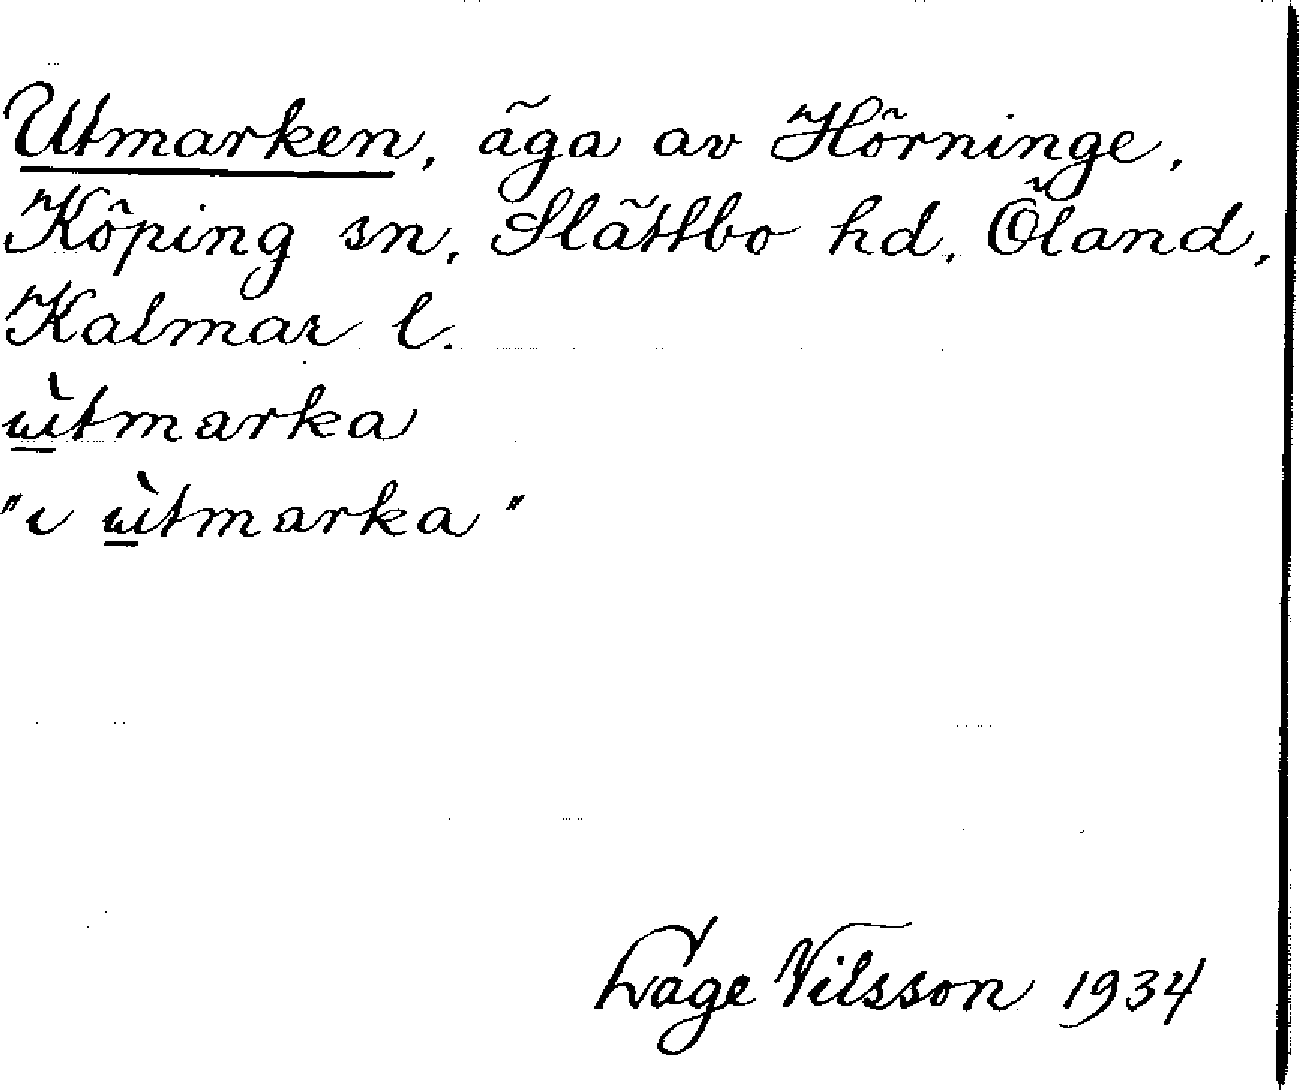 Utmarken, äga av Hörninge,
Köping sn, Slättbo hd, Öland,
Kalmar l.
ùtmarka
"i ùtmarka"
Låge Nilsson 1934